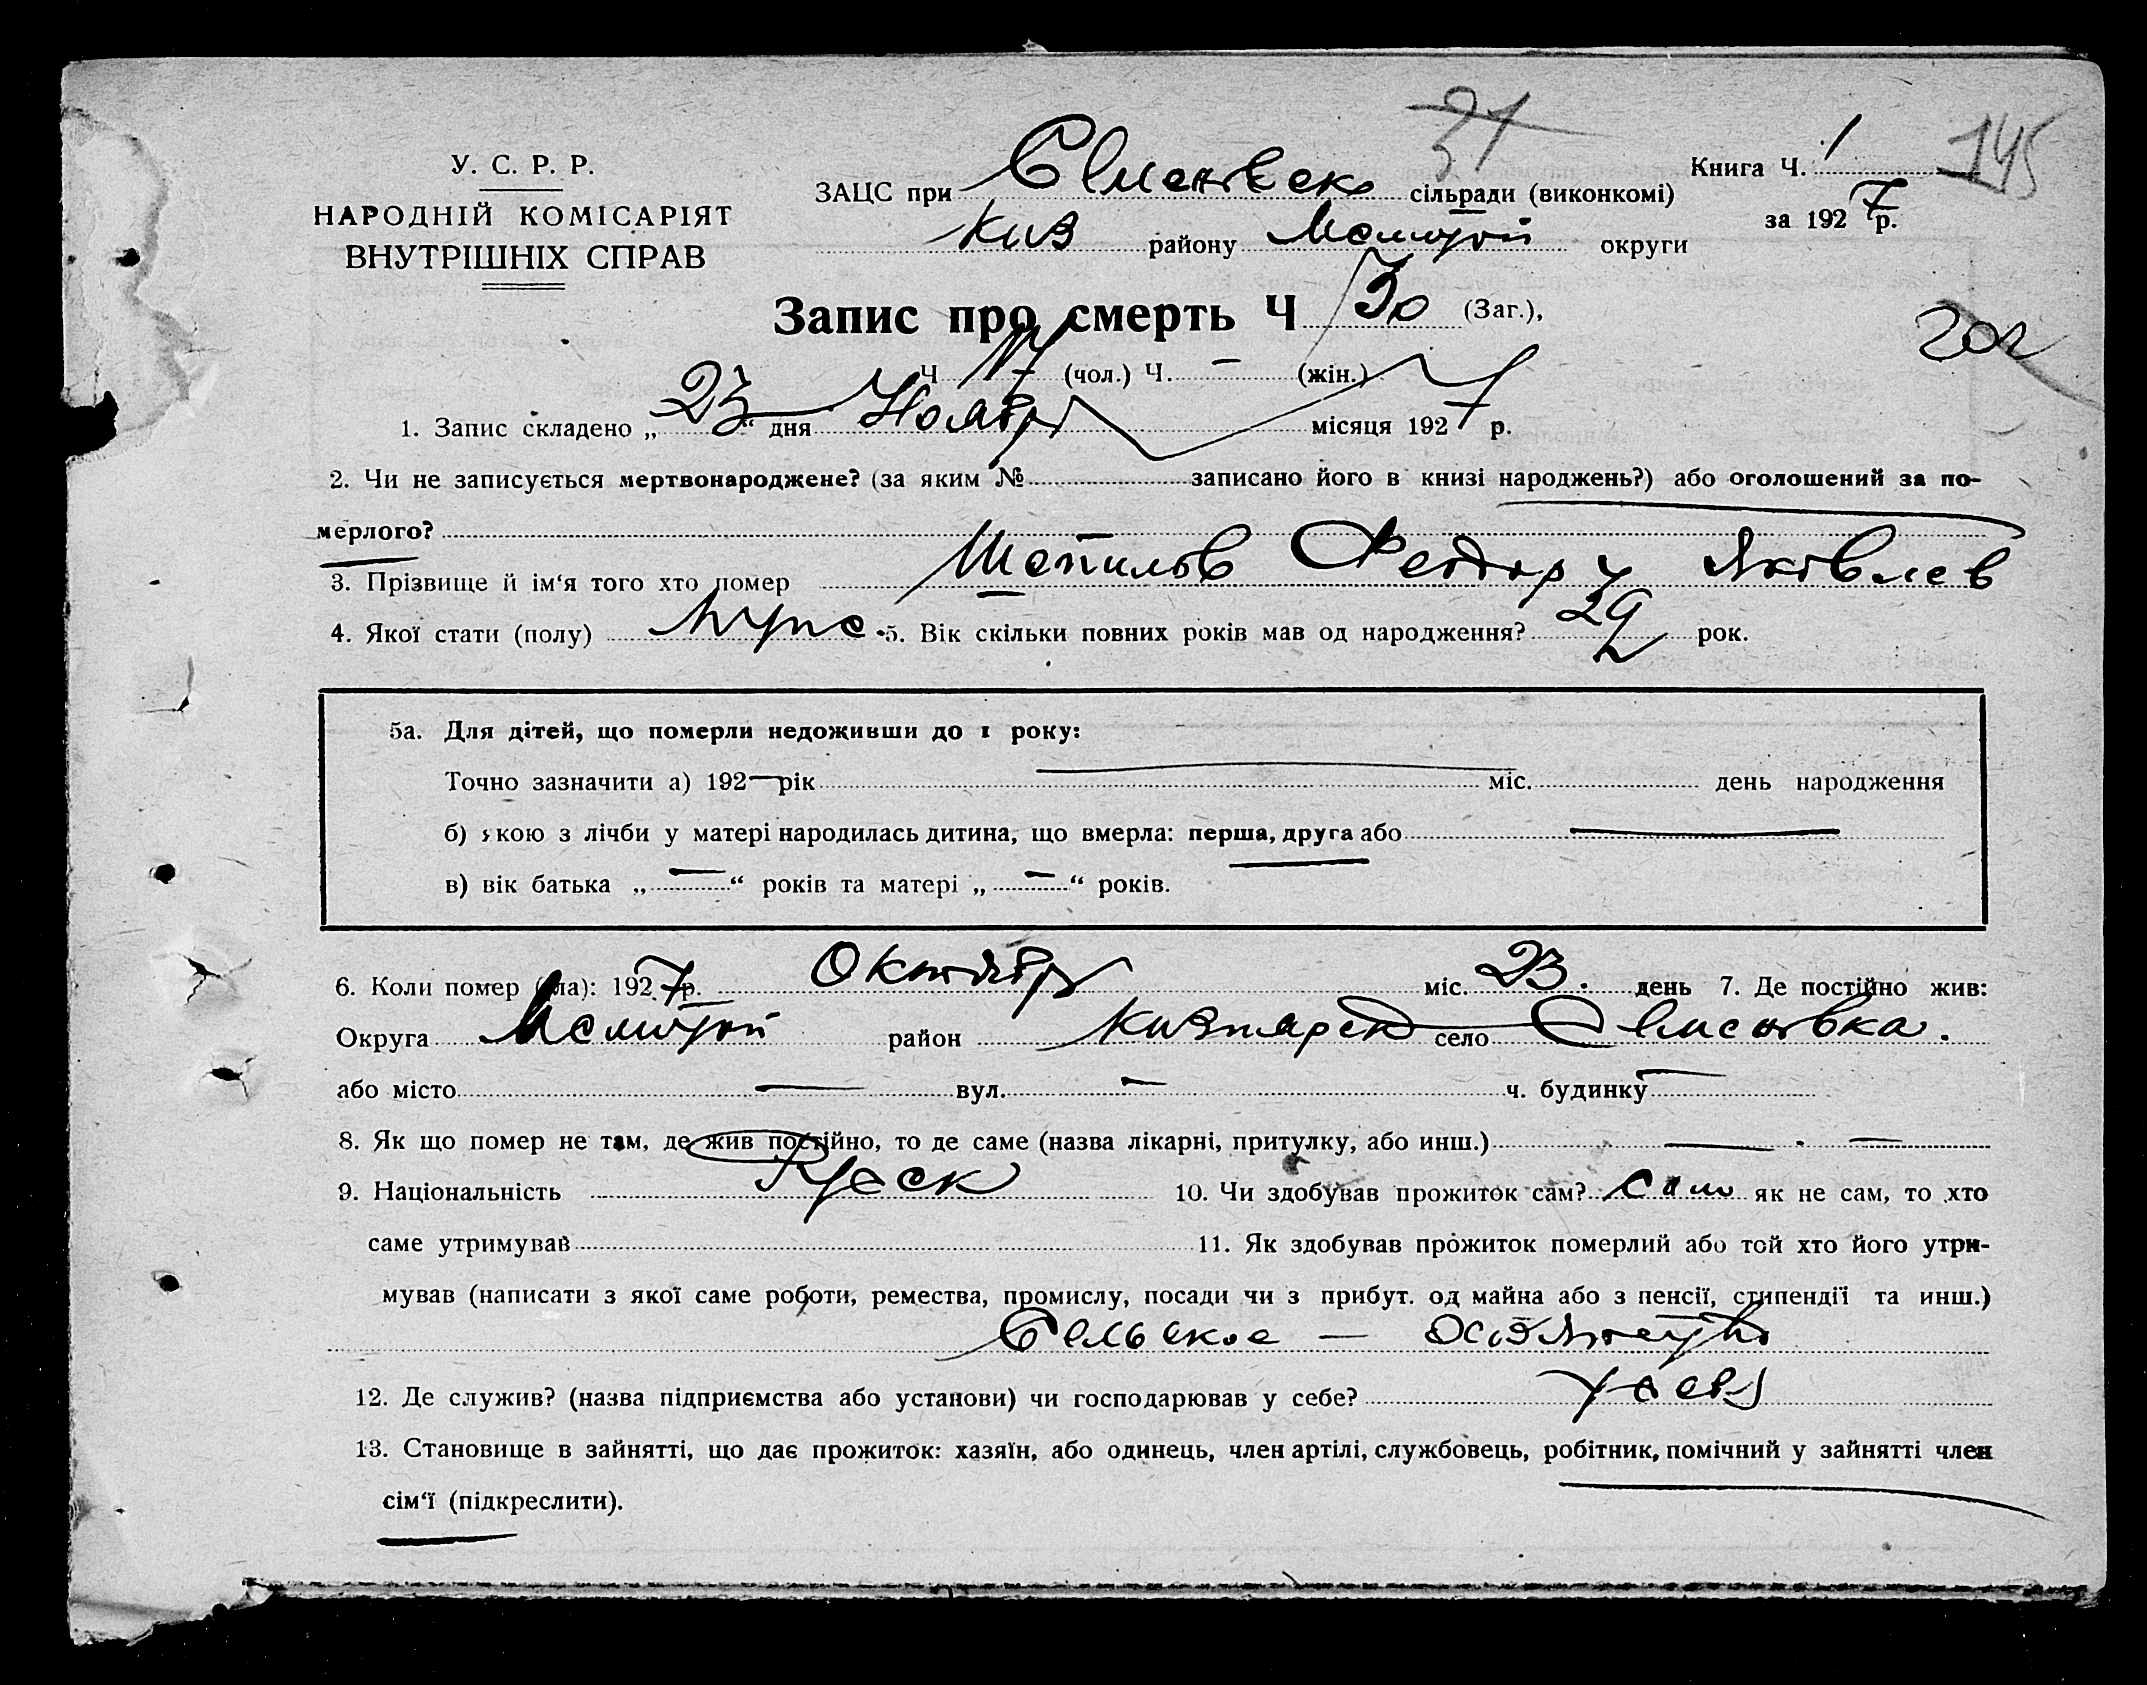 31
145
У. С. Р. Р.
НАРОДНІЙ КОМІСАРІЯТ
ВНУТРІШНІХ СПРАВ
ЗАЦС при сільради (виконкомі)
Киз району Мелитоп округи
Книга Ч. 1
за 1927 р.
Запис про смерть Ч 30 (Заг.),
202
Ч 17 (чол.) Ч. — (жін.)
1. Запис складено „23“ дня Ноябр місяця 1927 р.
2. Чи не записується мертвонароджене? (за яким № записано його в книзі народжень?) або оголошений за по-
мерлого?
3. Прізвище й ім'я того хто помер Шепилов Федор Яковлев
4. Якої стати (полу) муже 5. Вік скільки повних років мав од народження? 29 рок.
5а. Для дітей, що померли недоживши до 1 року:
Точно зазначити а) 192— рік міс. день народження
б) якою з лічби у матері народилась дитина, що вмерла: перша, друга або —
в) вік батька „—“ років та матері „—“ років.
6. Коли помер (ла): 1927 р. Октябр міс. 23 день 7. Де постійно жив:
Округа Мелитоп район Кизиярск село
або місто — вул. — ч. будинку —
8. Як що помер не там, де жив постійно, то де саме (назва лікарні, притулку, або инш.) — —
9. Національність Руск 10. Чи здобував прожиток сам? сам як не сам, то хто
саме утримував 11. Як здобував прожиток померлий або той хто його утри-
мував (написати з якої саме роботи, ремества, промислу, посади чи з прибут. од майна або з пенсії, стипендії та инш.)
Сельское — хозяйство
12. Де служив? (назва підприємства або установи) чи господарював у себе? у себя
13. Становище в зайнятті, що дає прожиток: хазяїн, або одинець, член артілі, службовець, робітник, помічний у зайнятті член
сім'ї (підкреслити).